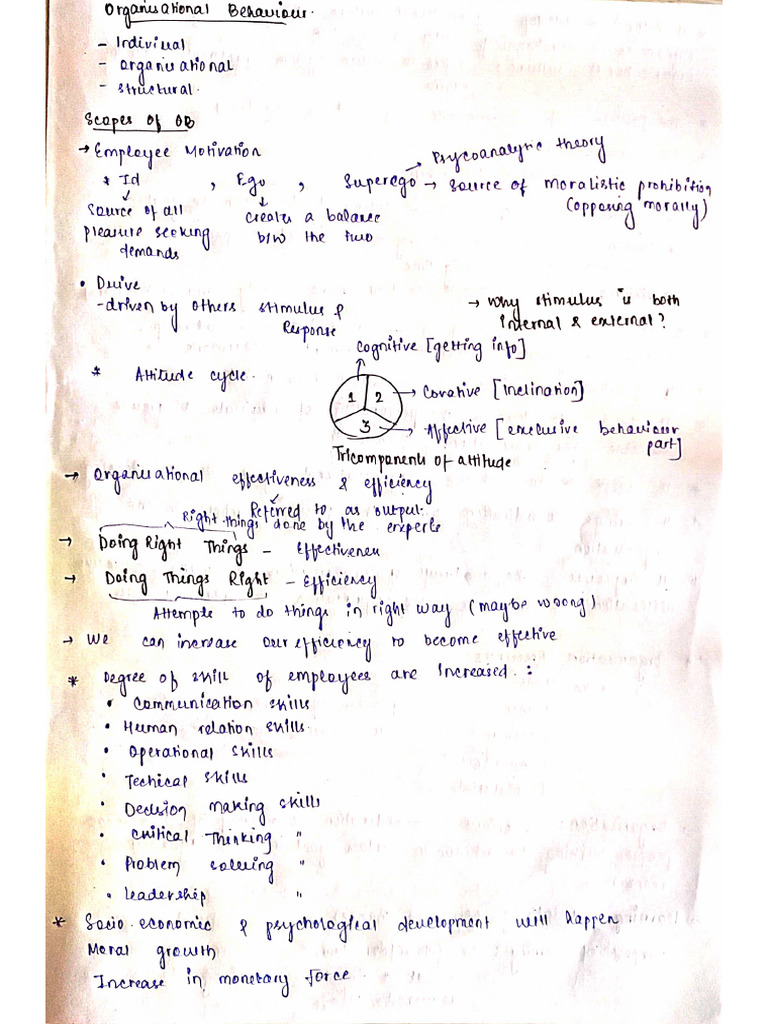 Organisational Behaviour.
- Individual
- Organisational
- Structural.
Scopes of OB
→ Employee Motivation
→ Psycoanalytic theory
* Id , Ego , Superego → Source of moralistic prohibition
(opposing morally)
Source of all
pleasure seeking
demands
creates a balance
b/w the two
• Drive
- driven by others stimulus &
Response
→ Why stimulus is both
Internal & external?
* Attitude cycle.
Cognitive [getting info]
1 2 3
→ Conative [Inclination]
→ Affective [execusive behaviour
part]
Tricomponents of attitude
→ Organisational effectiveness & efficiency
Referred to as output.
Right things done by the experts
→ Doing Right Things - Effectiveness
→ Doing Things Right - Efficiency
Attempts to do things in right way (maybe wrong)
→ We can increase our efficiency to become effective
* Degree of skill of employees are increased :
• Communication skills
• Human relation skills.
• Operational skills
• Techical skills
• Decision making skills
• Critical Thinking "
• Problem solving "
• Leadership "
* Socio-economic & psychological development will happen
Moral growth
Increase in monetary force.